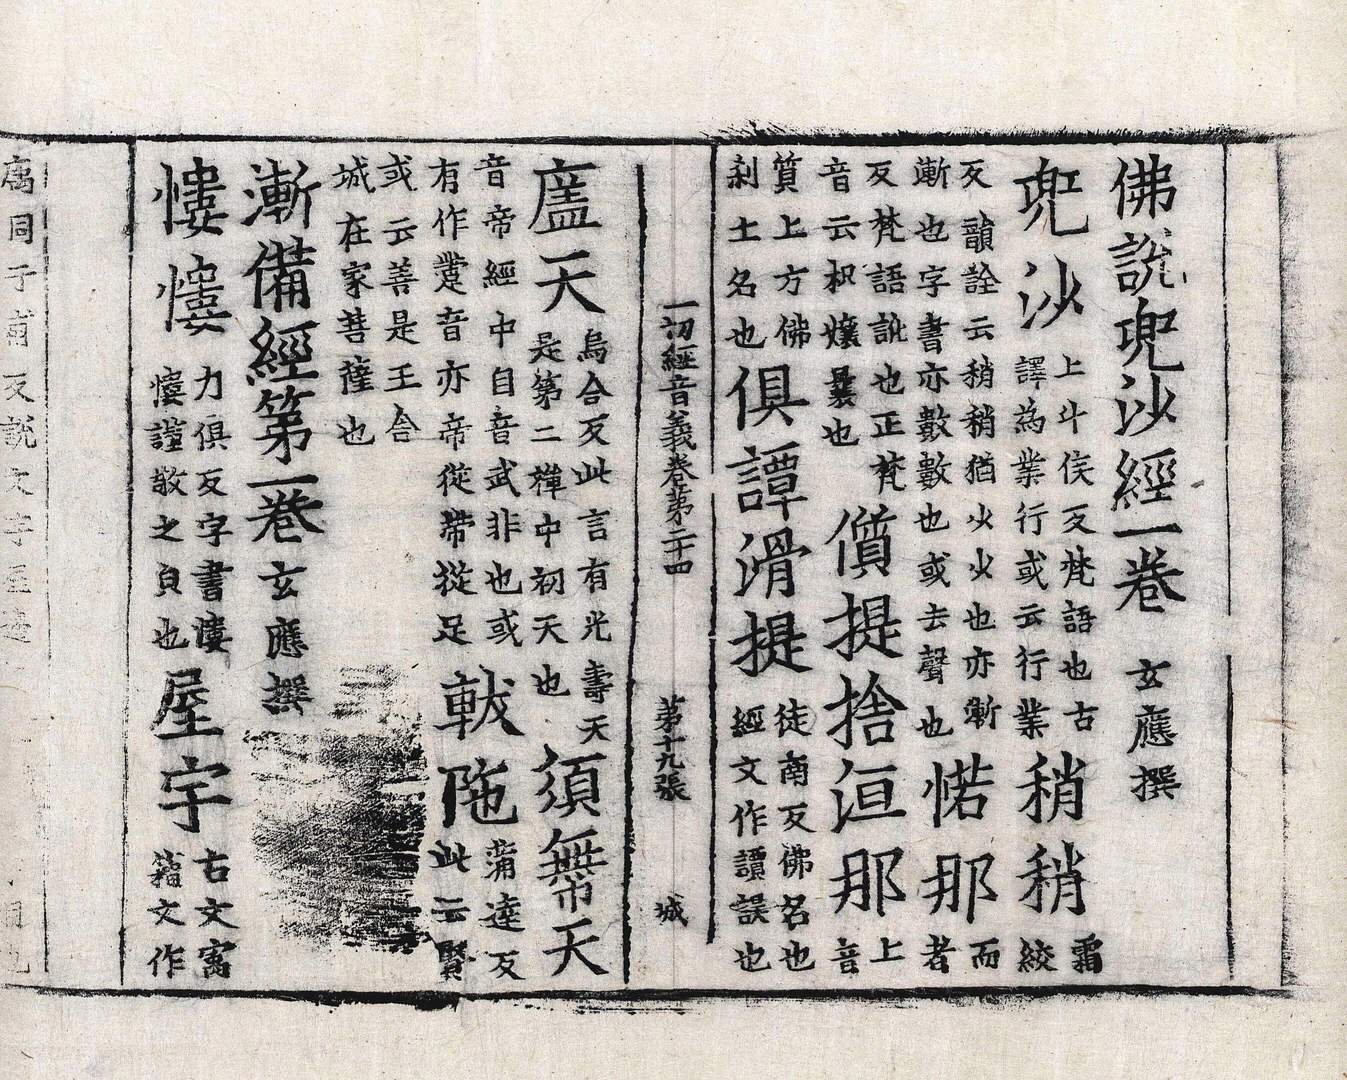 佛說兜沙經一卷 玄應撰
兜沙 上斗侯反梵語也古
譯為業行或云行業 稍稍 霜
絞
反韻詮云稍稍猶少少也亦漸
漸也字書亦數數也或去聲也 惹那 而
者
反梵語訛也正梵
音云枳孃曩也 儨提捨洹那 上
音
質上方佛
刹土名也 俱譚滑提 徒南反佛名也
經文作譚誤也
一切經音義卷第二十四 第十九張 城
廅天 烏合反此言有光壽天
是第二禪中初天也 須無天
音帝經中自音武非也或
有作疐音亦帝從帶從足 軷陁 蒱達反
此云賢
或云善是王舍
城在家菩薩也
漸備經第一卷 玄應撰
慺慺 力俱反字書慺
慺謹敬之皃也 屋宇 古文寓
籀文作
同于甫反說文宇